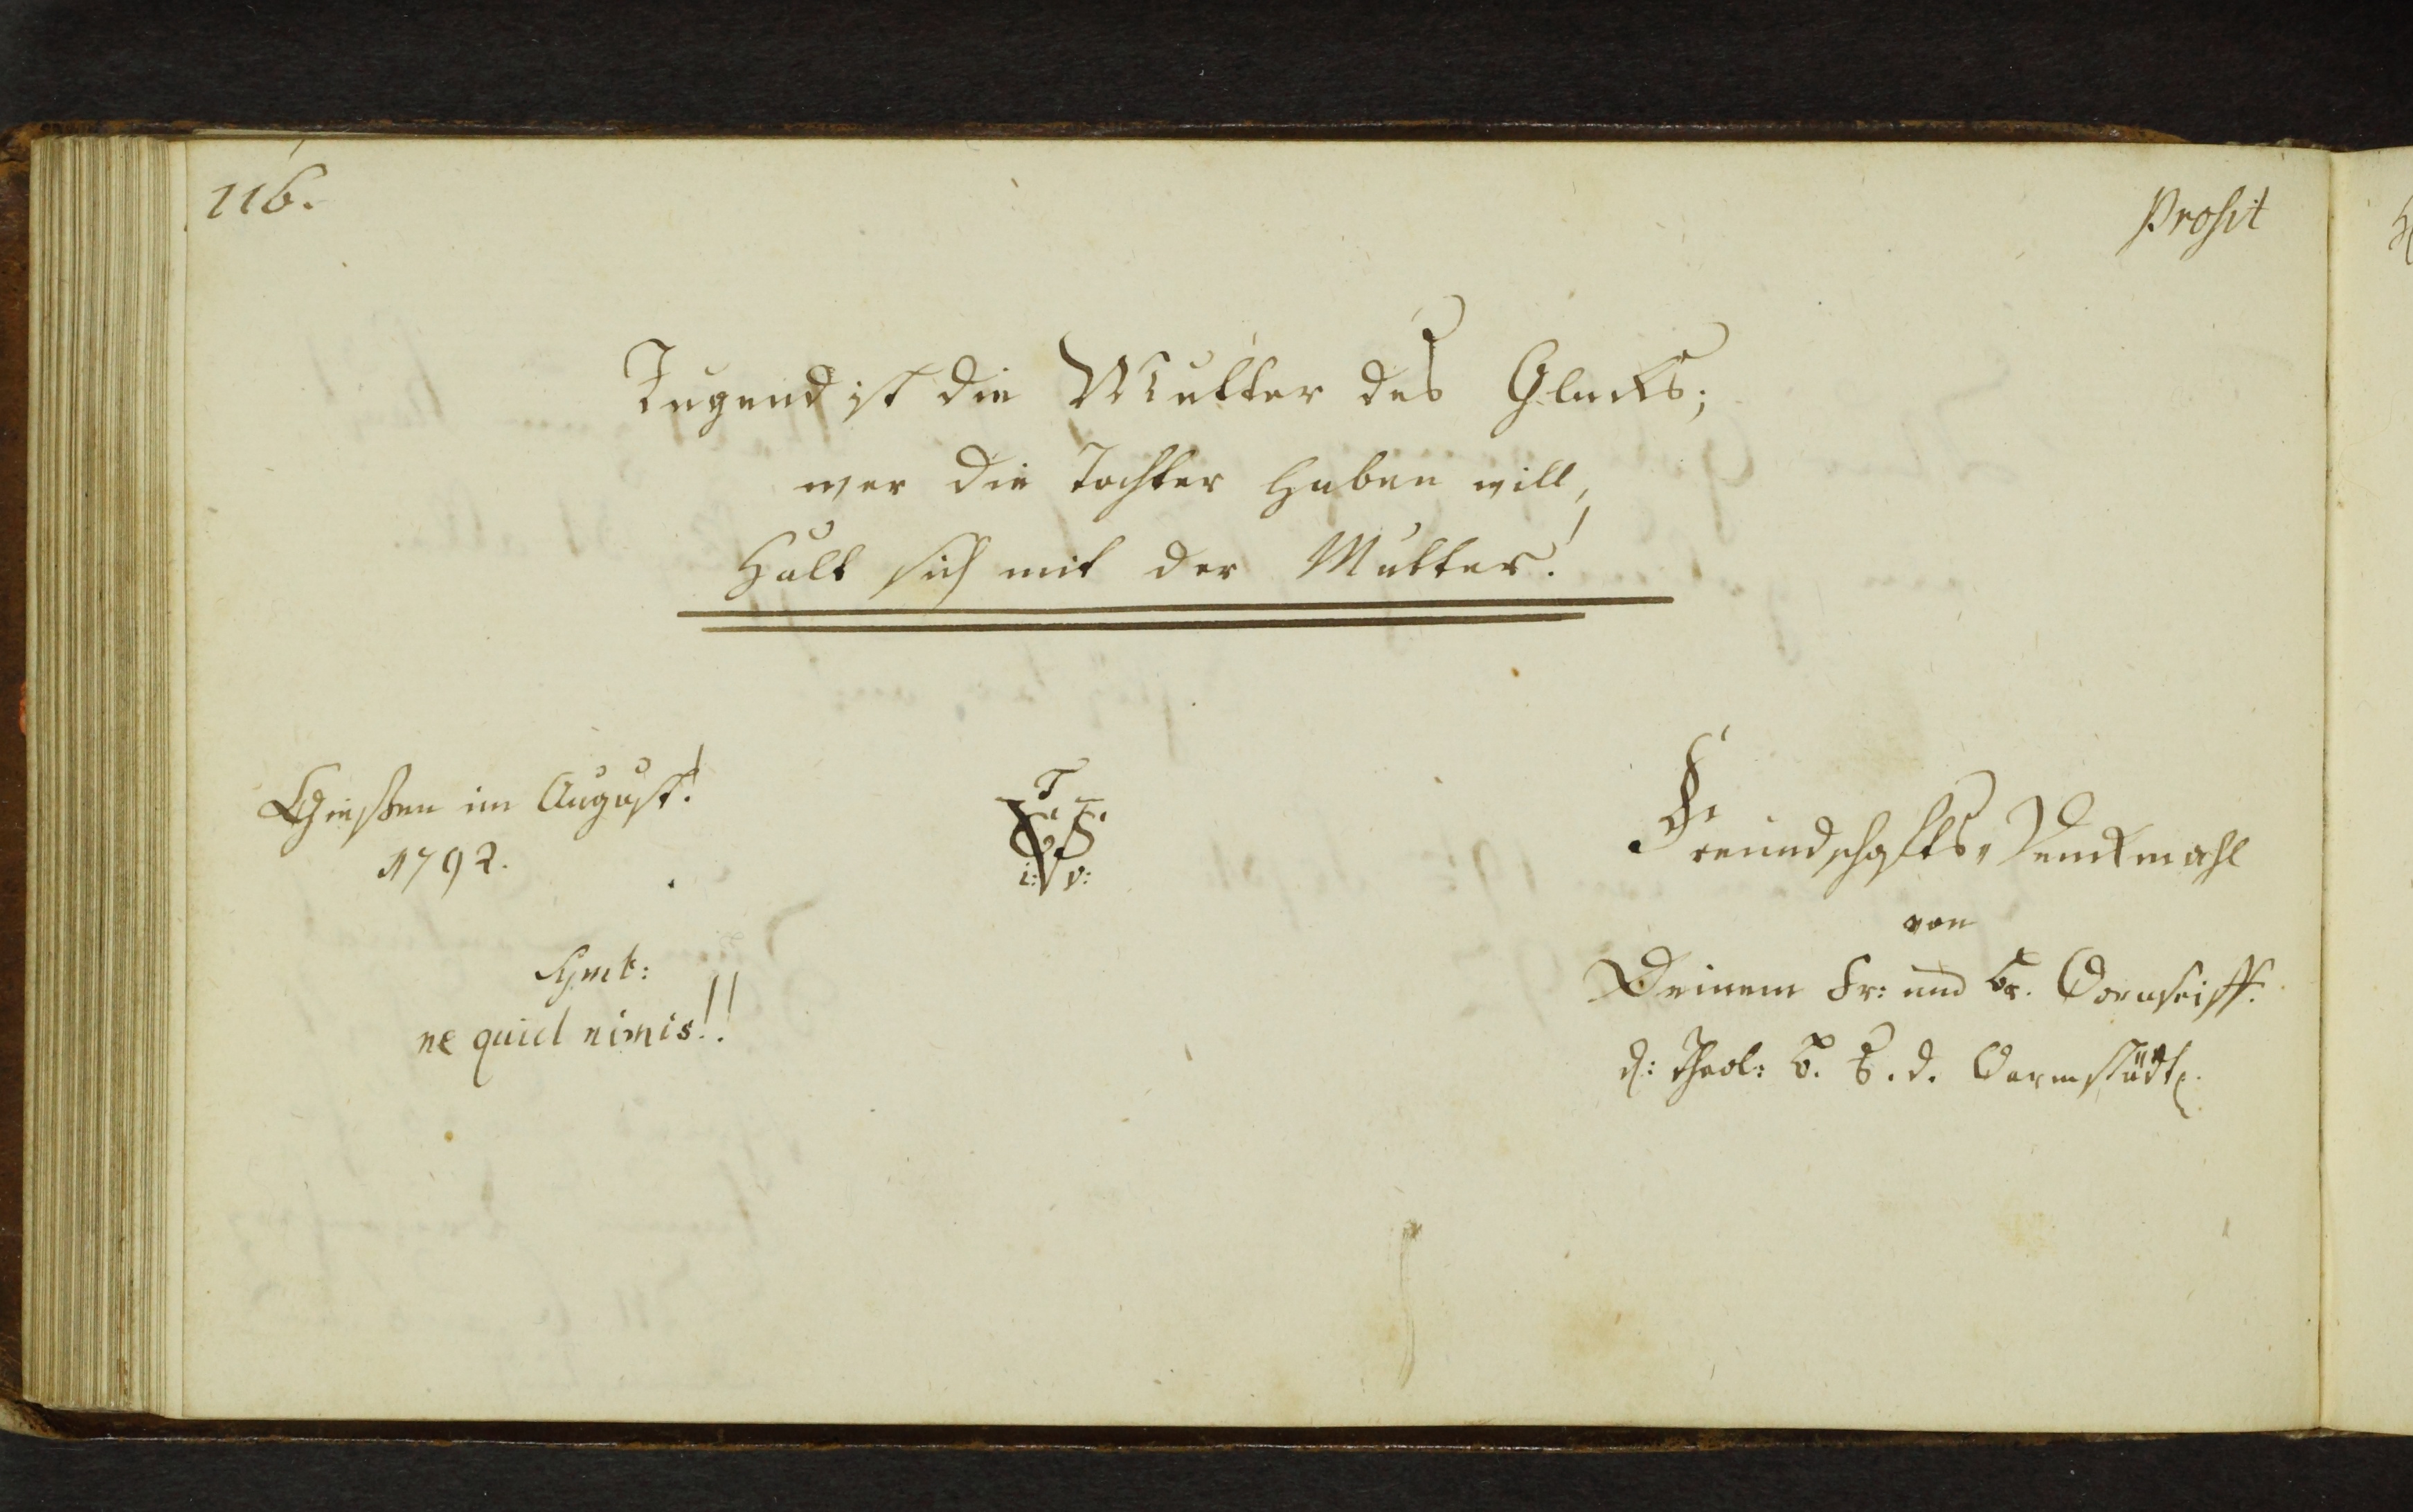 116.
Prosit
Tugend ist die Mutter des Glücks;
wer die Tochter haben will,
Halt sich mit der Mutter!
Giessen im August!
1792.
Symb:
ne quid nimis!!
Freundschafts, Denckmahl
von
Deinem Fr: und Br. Dornseiff.
d: Theol: B. d. Darmstädt.